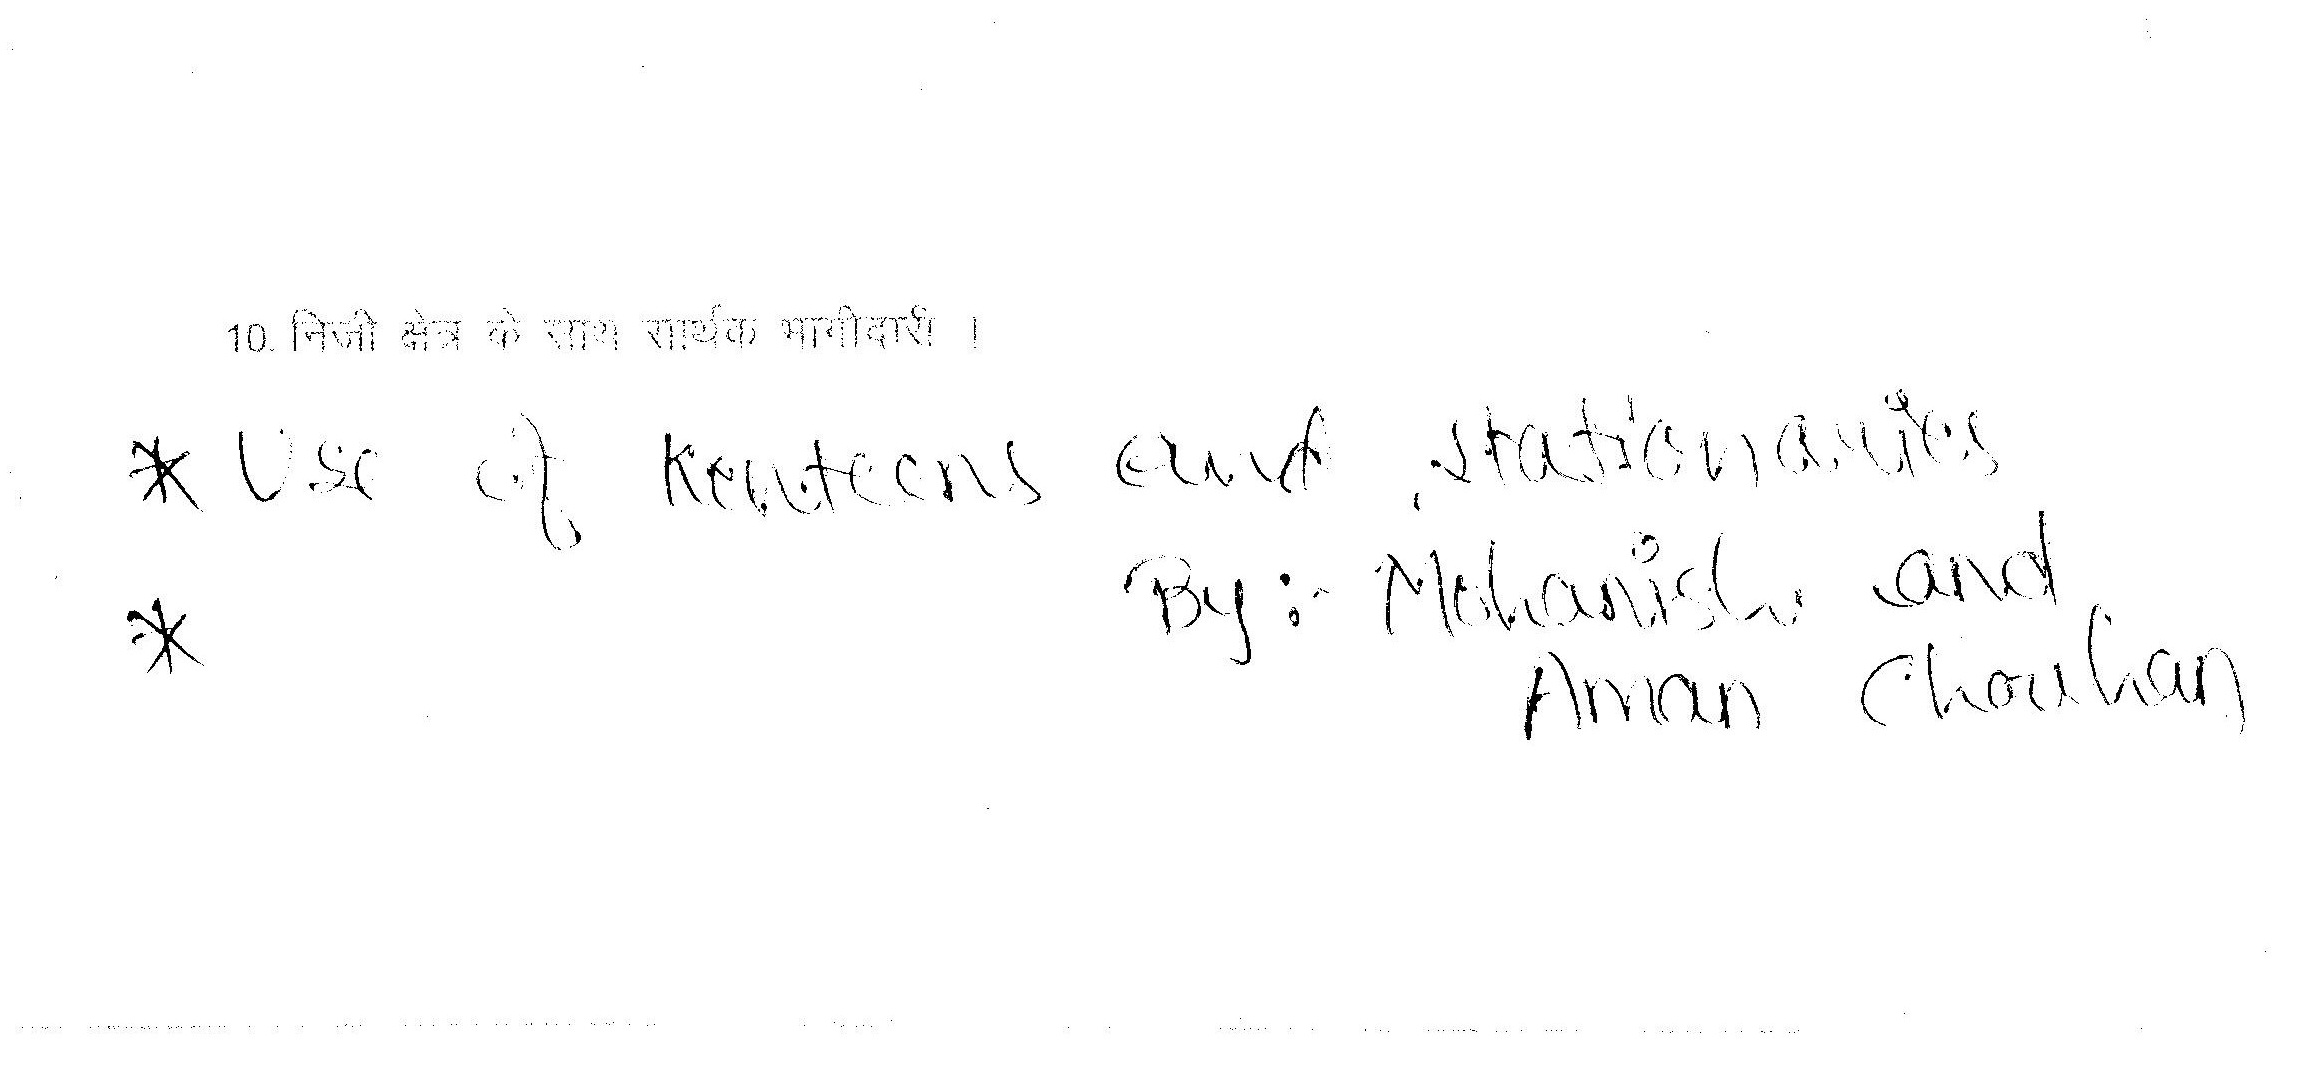 10. निजी क्षेत्र के साथ सार्थक भागीदारी ।
* Use of Kenteens and stationaries
* By :- Mohanish and
Aman Chouhan